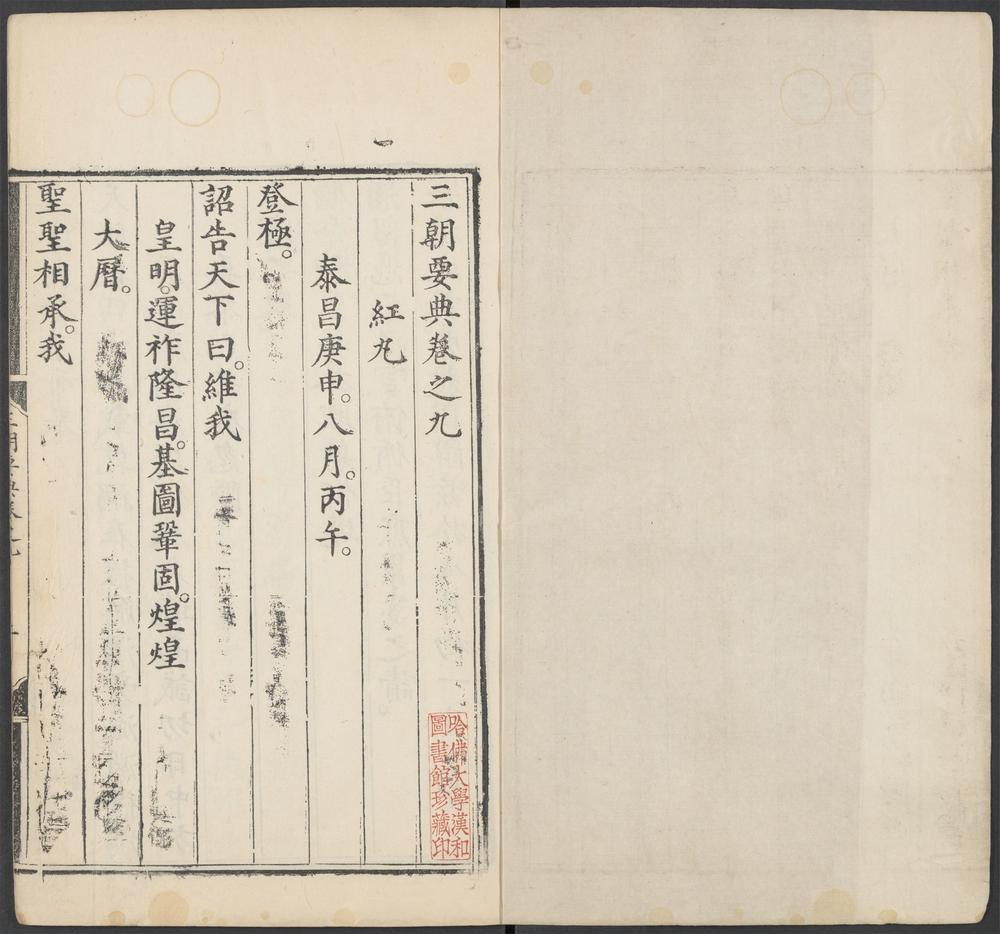 三朝要典卷之九
紅丸
泰昌庚申。八月。丙午。
登極。
詔告天下曰。維我
皇明。運祚隆昌。基圖鞏固。煌煌
大曆。
聖聖相承。我
哈佛大學漢和
圖書館珍藏印